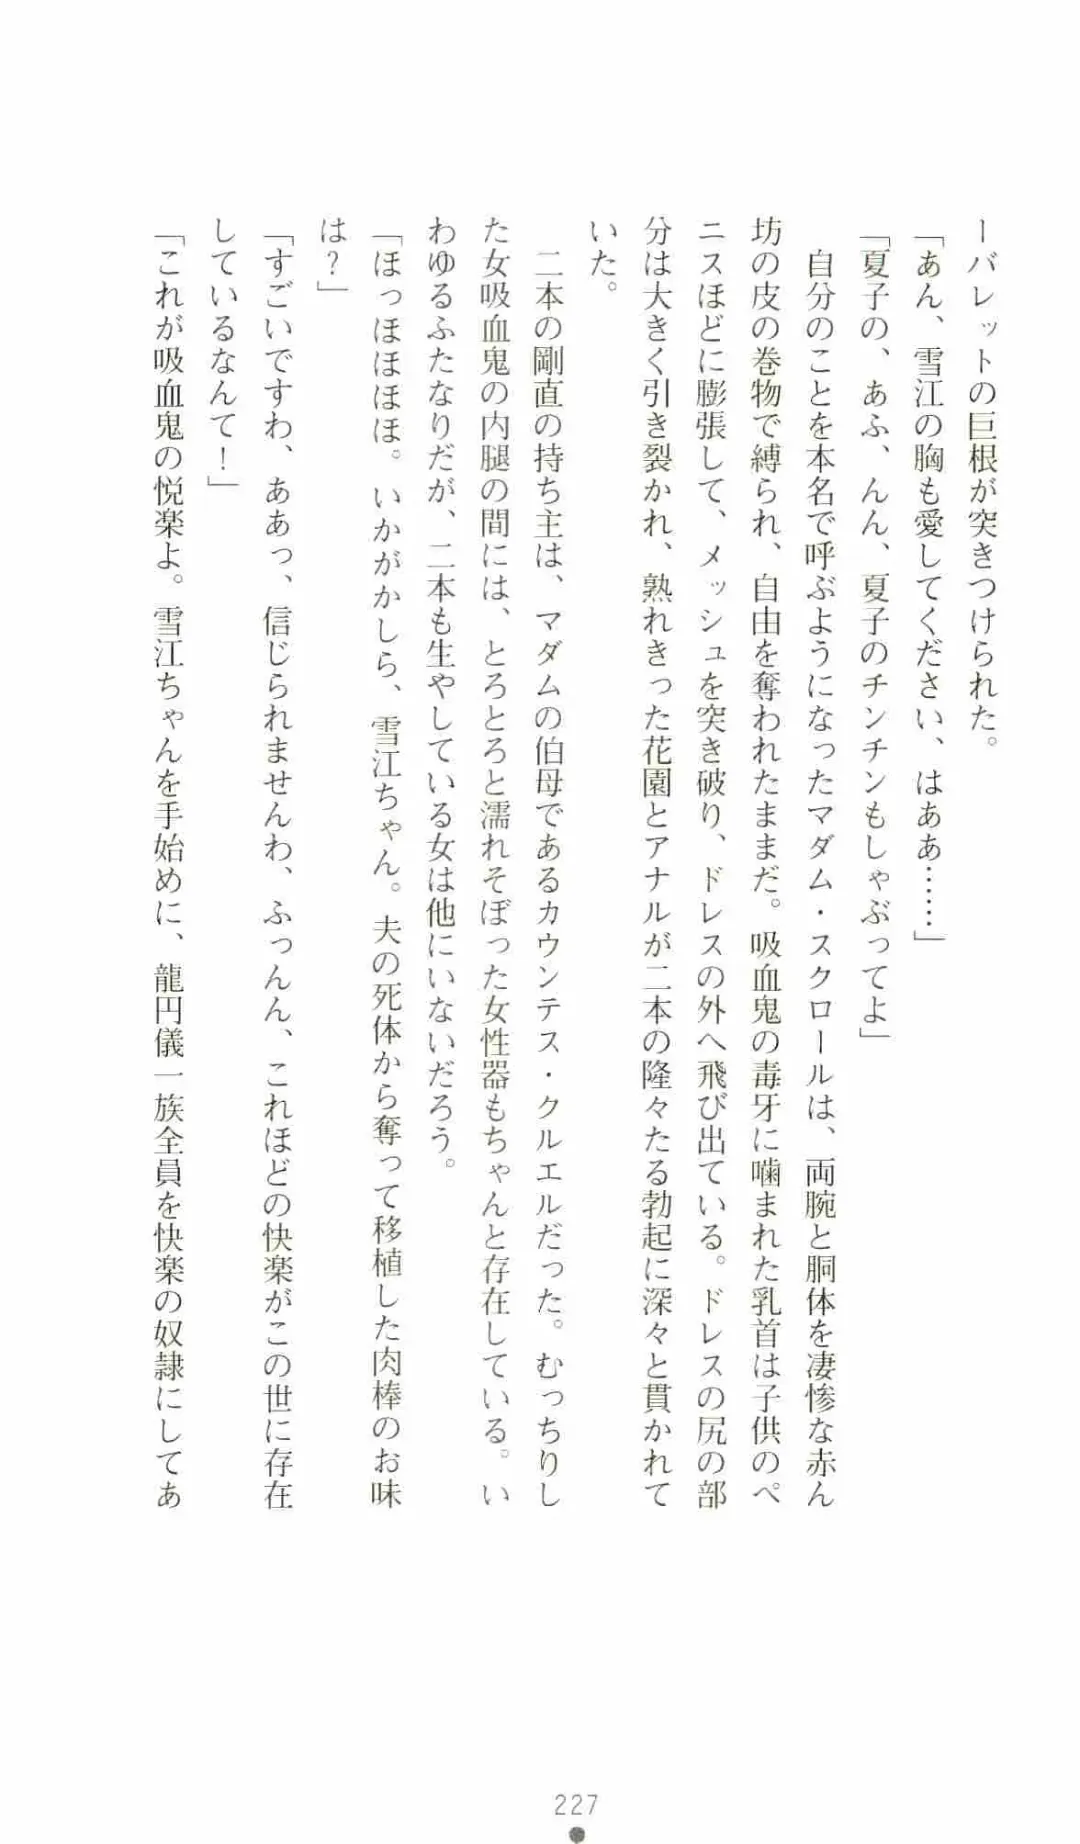 ーバレットの巨根が突きつけられた。
「あん、雪江の胸も愛してください、はああ……」
「夏子の、あふ、んん、夏子のチンチンもしゃぶってよ」
　自分のことを本名で呼ぶようになったマダム・スクロールは、両腕と胴体を凄惨な赤ん
坊の皮の巻物で縛られ、自由を奪われたままだ。吸血鬼の毒牙に噛まれた乳首は子供のペ
ニスほどに膨張して、メッシュを突き破り、ドレスの外へ飛び出ている。ドレスの尻の部
分は大きく引き裂かれ、熟れきった花園とアナルが二本の隆々たる勃起に深々と貫かれて
いた。
　二本の剛直の持ち主は、マダムの伯母であるカウンテス・クルエルだった。むっちりし
た女吸血鬼の内腿の間には、とろとろと濡れそぼった女性器もちゃんと存在している。い
わゆるふたなりだが、二本も生やしている女は他にいないだろう。
「ほっほほほほ。いかがかしら、雪江ちゃん。夫の死体から奪って移植した肉棒のお味
は？」
「すごいですわ、ああっ、信じられませんわ、ふっんん、これほどの快楽がこの世に存在
しているなんて！」
「これが吸血鬼の悦楽よ。雪江ちゃんを手始めに、龍円儀一族全員を快楽の奴隷にしてあ
227